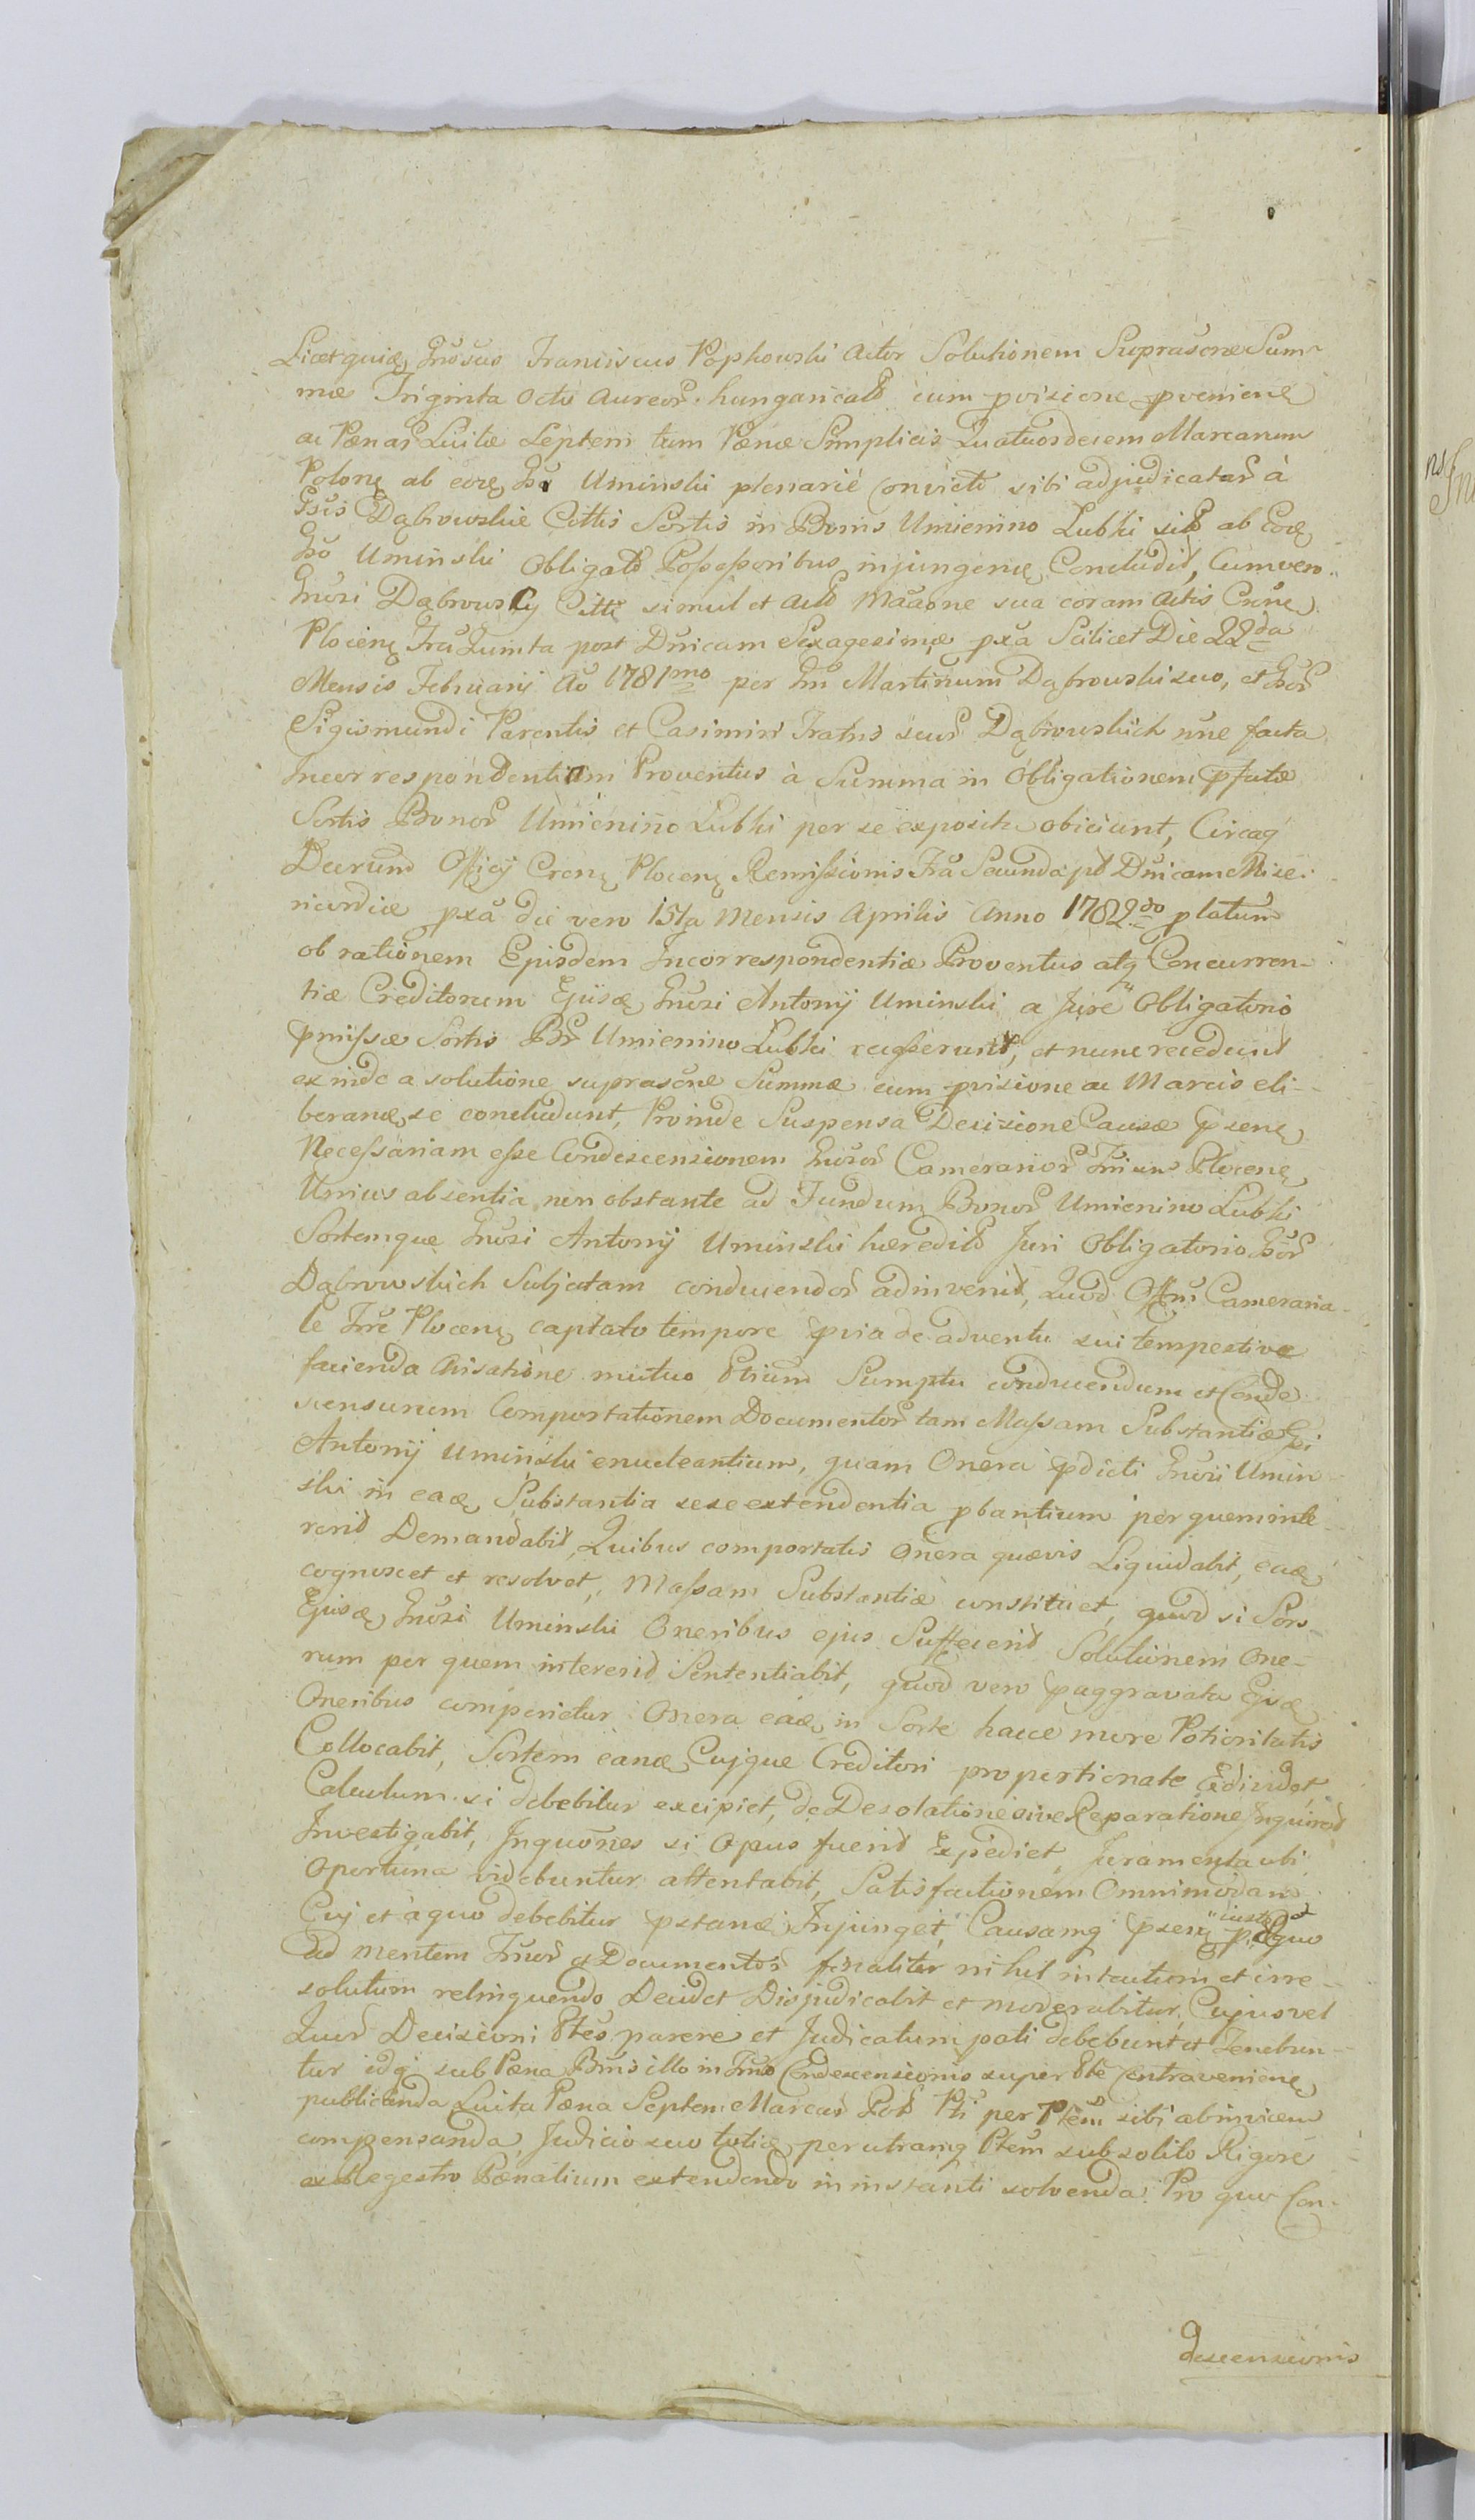 Licet quidę Gnosus Franciscus Popkowski Actor Solutionem Suprascrae Sum-
mae Triginta Octo Aureor. hungaricalt cum pvizione pvenienę
ac Paenar Luitae Septem tum Paenae Simplicis Quatuordecem Marcarum
Polonę ab eoę Gso Uminski plenarié convicto sibi adjudicatar à
Gsis Dąbrowskie Cittis Sortis in Bonis Umienino Lubki sibi ab Eoę
Gso Uminski Obligatae Possessoribus injungenę Concludit, Cum vero
Gnosi Dąbrowscy Citti simul et acto Maãone sua coram Actis Crene
Plocenę Fra Quinta post Dnicam Sexagesimae pxa Scilicet Die 22da
Mensis February Ao 1781mo per Gm Martinum Dąbrowski suo, et Gsor
Sigismundi Parentis et Casimiri Fratris suor Dąbrowskich nne facta
Incorrespondentiam Proventus à Summa in Obligationem pfatae
Sortis Bonor Umienino Lubki per se exposita obiciunt, Circaq
Decretum Officij Crenę Plocenę Remissionis Fra Secunda pt Dnicam Mise-
ricordiae pxa die vero 15ta Mensis Aprilis Anno 1782do platum
ob rationem Ejusdem Incorrespondentiae Proventus atq Concurren-
tiae Creditorum Ejusdę Gnosi Antonij Uminski a Jure Obligatorio
pmissae Sortis Br Umienino Lubki recesserunt, et nunc recedunt
exinde a solutione suprascrae Summae cum pvizione ac Marcis eli-
berandę se concludunt, Proinde Suspensa Decisione Causae psenę
Necessariam esse Condescensionem Gnosor Camerarior Trium Plocenę
Unius absentia non obstante ad Fundum Bonor Umienino Lubki
Sortemque Gnosi Antonij Uminski haeredit Juri Obligatorio Gsor
Dąbrowskich Subjectam conducendor adinvenit, Quod Offm Cameraria-
le Trre Plocenę captato tempore pvia de adventu sui tempestive
facienda Avisatione mutuo Ptium Sumptu conducendum et Conde-
scensurum Comportationem Documentor tam Massam Substantiae Gsi
Antonij Uminski enucleantium, quam Onera pdicti Gnosi Umin-
ski in eadę Substantia sese extendentia pbantium per quem inte-
rerit Demandabit, Quibus comportatis Onera quaevis Liquidabit, eadę
cognoscet et resolvet, Massam Substantiae constituet, quod si Sors
Ejusdę Gnosi Uminski Oneribus ejus Suffecerit Solutionem One-
rum per quem intererit Sententiabit, quod vero paggravata Ejusdę
Oneribus comperietur Onera eadę in Sorte hacce more Potioritatis
Collocabit, Sortem eandę Cujque Creditori proportionate Edividet,
Calculum si debebitur excipiet, de Desolatione sive Reparatione Inquiret
Investigabit, Inquones si Opus fuerit Expediet, Juramenta ubi
Oportuna videbuntur attentabit, Satisfactionem Omnimodam
Cuj et à quo debebitur pstandę Injunget, Causamq psenę juste et
ad mentem Jnor et Documentor finaliter nihil intactum et irre-
solutum relinquendo Decidet Disjudicabit et moderabitur, Cujusvel
Quor Decisioni Ptes parere et Judicatum pati debebunt et Tenebun-
tur idq sub Paena Bnis illo in Tmno Condescensionis super Pte Contravenienę
publicanda Luita Paena Septem Marcar Pol Pti per Ptem sibi abinvicem
compensanda, Judicio suo totia per utramq Ptem sub solito Rigore
ex Regestro Paenalium extendendo in instanti solvenda. Pro quo Con-
descensionis